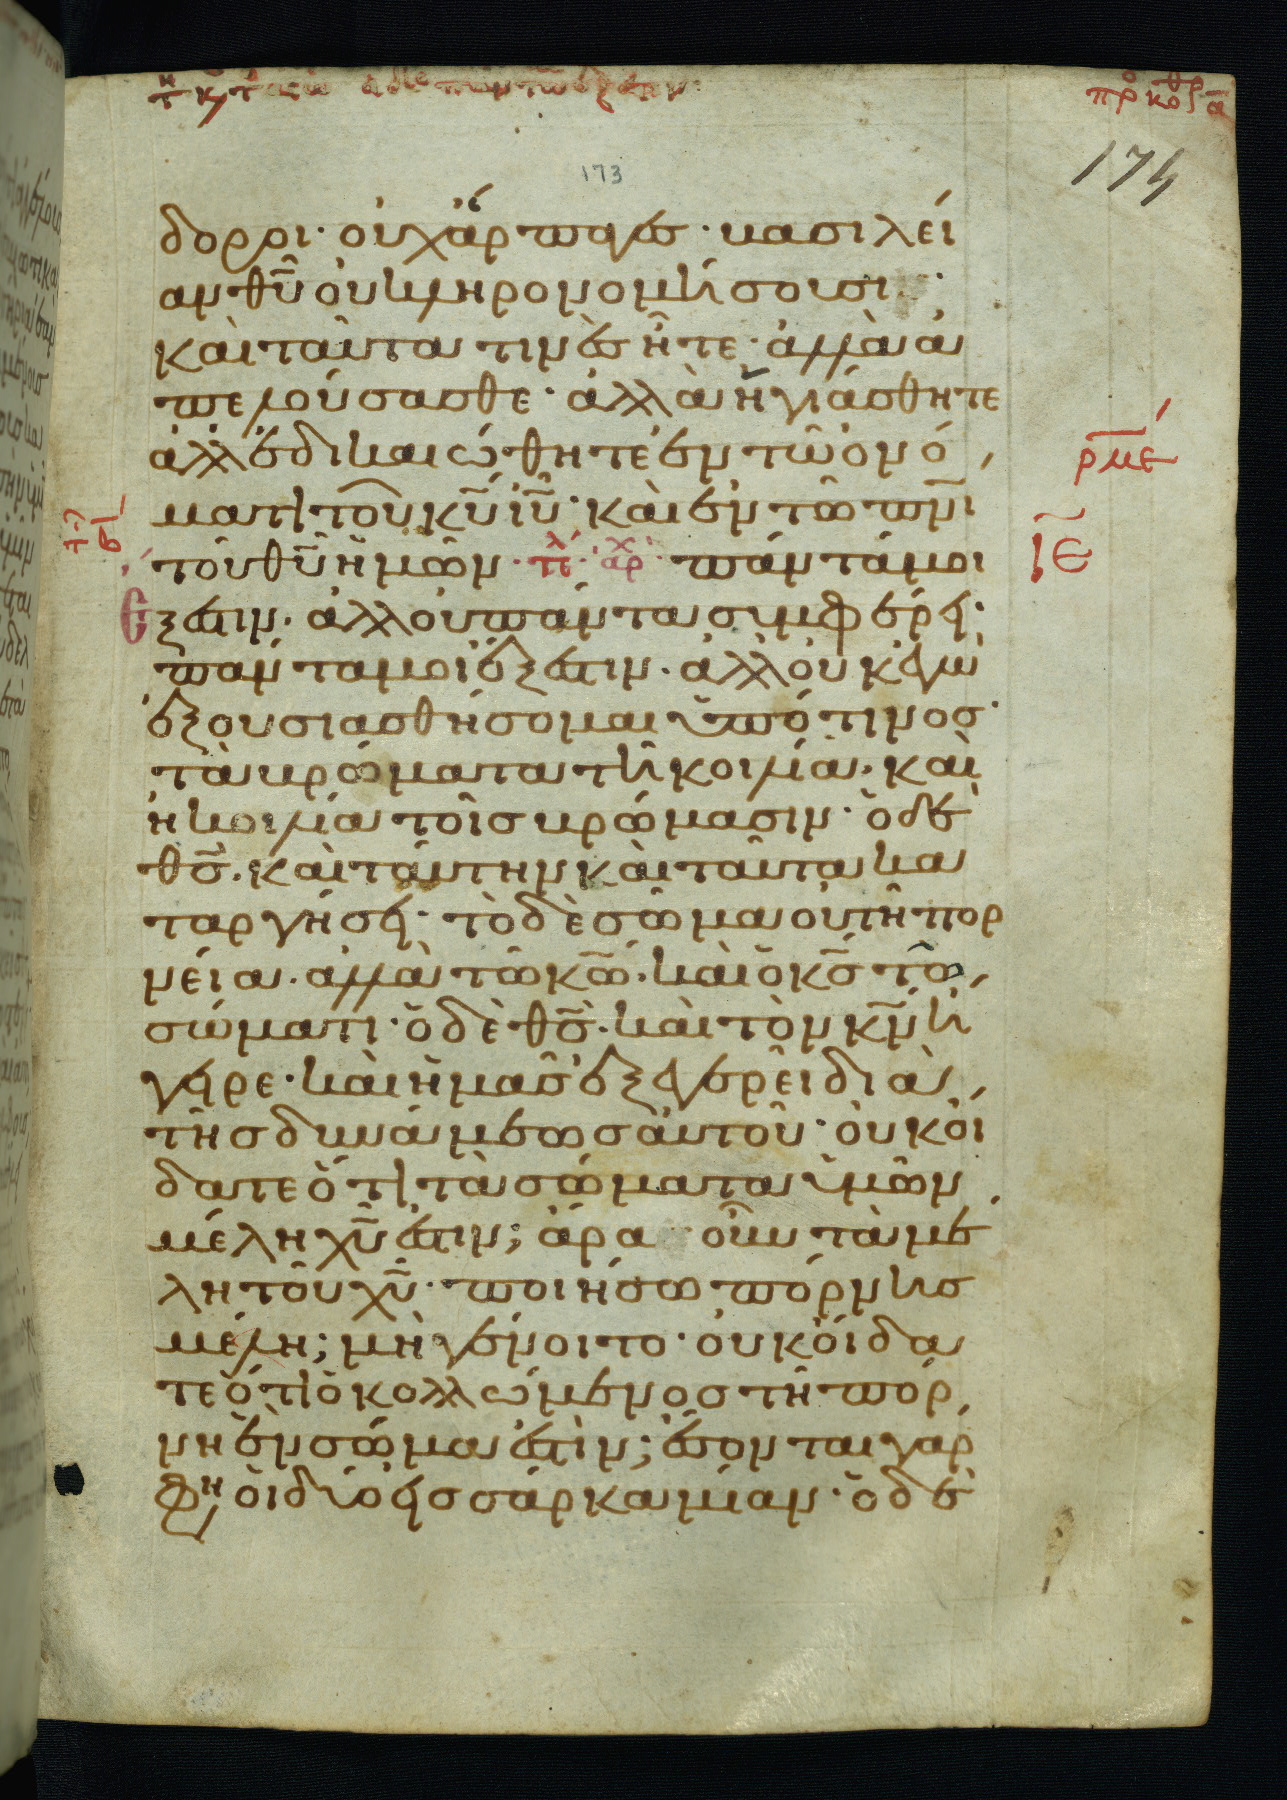 πρ κορ α
174
173
δοροι· οὐχ ἅρπαγες· βασιλεί
αν θυ̅ οὐ κληρονομήσουσι·
καὶ ταῦτά τινὲς ἦτε· ἀλλὰ ἀ
πελούσασθε· ἀλλὰ ἡγιάσθητε
ἀλλ' ἐδικαιώθητε ἐν τῶ ὀνό
ματι τοῦ κυ̅ ιυ̅· καὶ ἐν τῶ πνι̅
τοῦ θυ̅ ἡμῶν· πάντά μοι
ἔξεστιν· ἀλλ οὐ πάντα συμφέρει·
πάντά μοι ἔξεστιν· ἀλλ οὐκ ἐγὼ
ἐξουσιασθήσομαι ὑπό τινος·
τὰ βρώματα τῆ κοιλία· καὶ
ἡ κοιλία τοῖς βρώμασιν· ὁ δὲ
θς̅· καὶ ταύτην καὶ ταῦτα κα
ταργήσει· τὸ δὲ σῶμα οὐ τῆ πορ
νεία· ἀλλὰ τῶ κω̅· καὶ ὁ κς̅ τῶ
σώματι· ὁ δὲ θς̅· καὶ τὸν κν̅ ἤ
γειρε· καὶ ἡμᾶς ἐξεγερεῖ διὰ
τῆς δυνάμεως αὐτοῦ· οὐκ οἴ
δατε ὅτι τὰ σώματα ὑμῶν
μέλη χυ̅ ἐστιν; ἄρα οὖν τὰ μέ
λη τοῦ χυ̅· ποιήσω πόρνης
μέλη; μὴ γένοιτο· οὐκ οἴδα
τε ὅτι ὁ κολλώμενος τῆ πόρ
νη ἓν σῶμα ἐστὶν; ἔσονται γάρ
φη οἱ δύο εἰς σάρκα μίαν· ὁ δὲ
ρμε
ιε